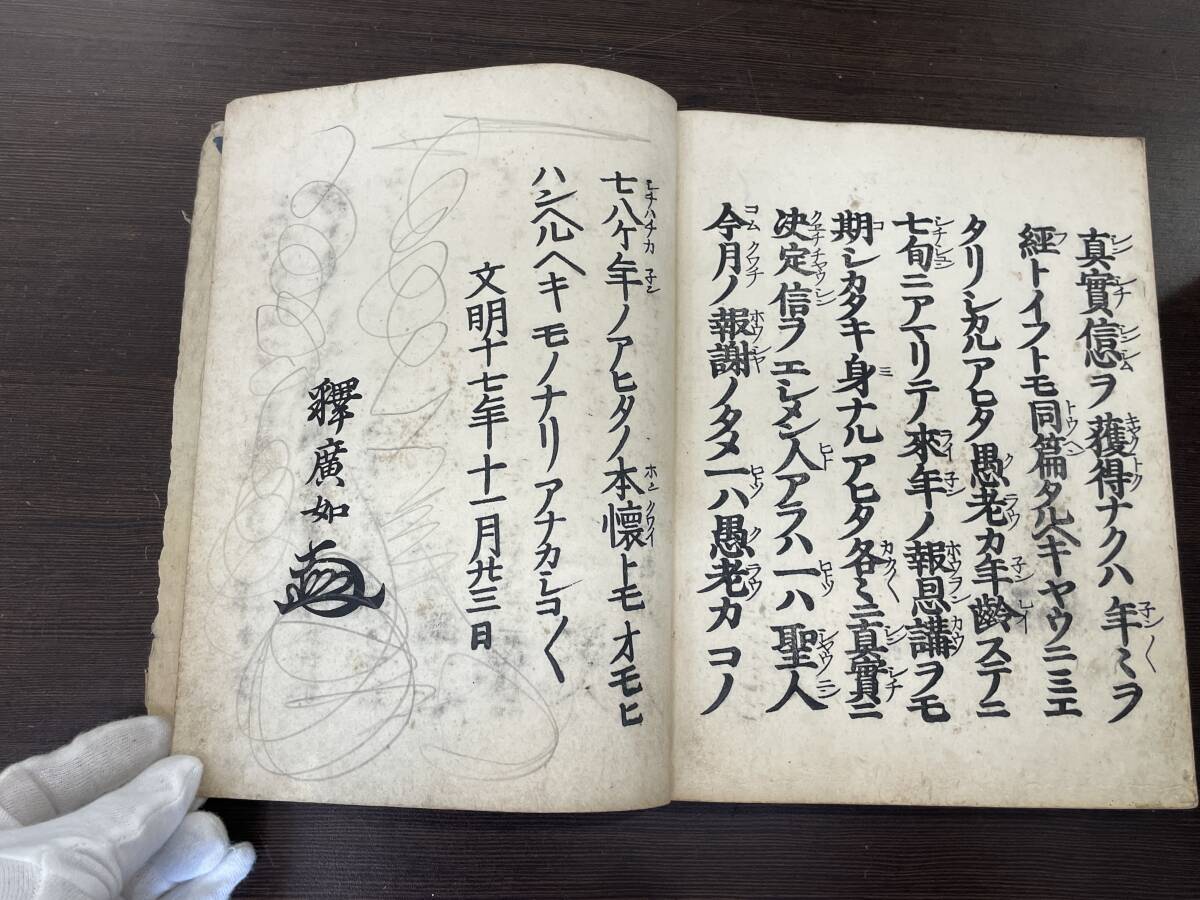 真實信心ヲ獲得ナクハ年〻ヲ
經トイフトモ同篇タルヘキヤウニミエ
タリシカルアヒタ愚老カ年齡ステニ
七旬ニアマリテ來年ノ報恩講ヲモ
期シカタキ身ナルアヒタ各〻ニ眞實ニ
决定信ヲエシメン人アラハ一ハ聖人
今月ノ報謝ノタメ一ハ愚老カコノ
七八ケ年ノアヒタノ本懷トモオモヒ
ハンヘルヘキモノナリアナカシコ〱
文明十七年十一月廿三日
釋廣如